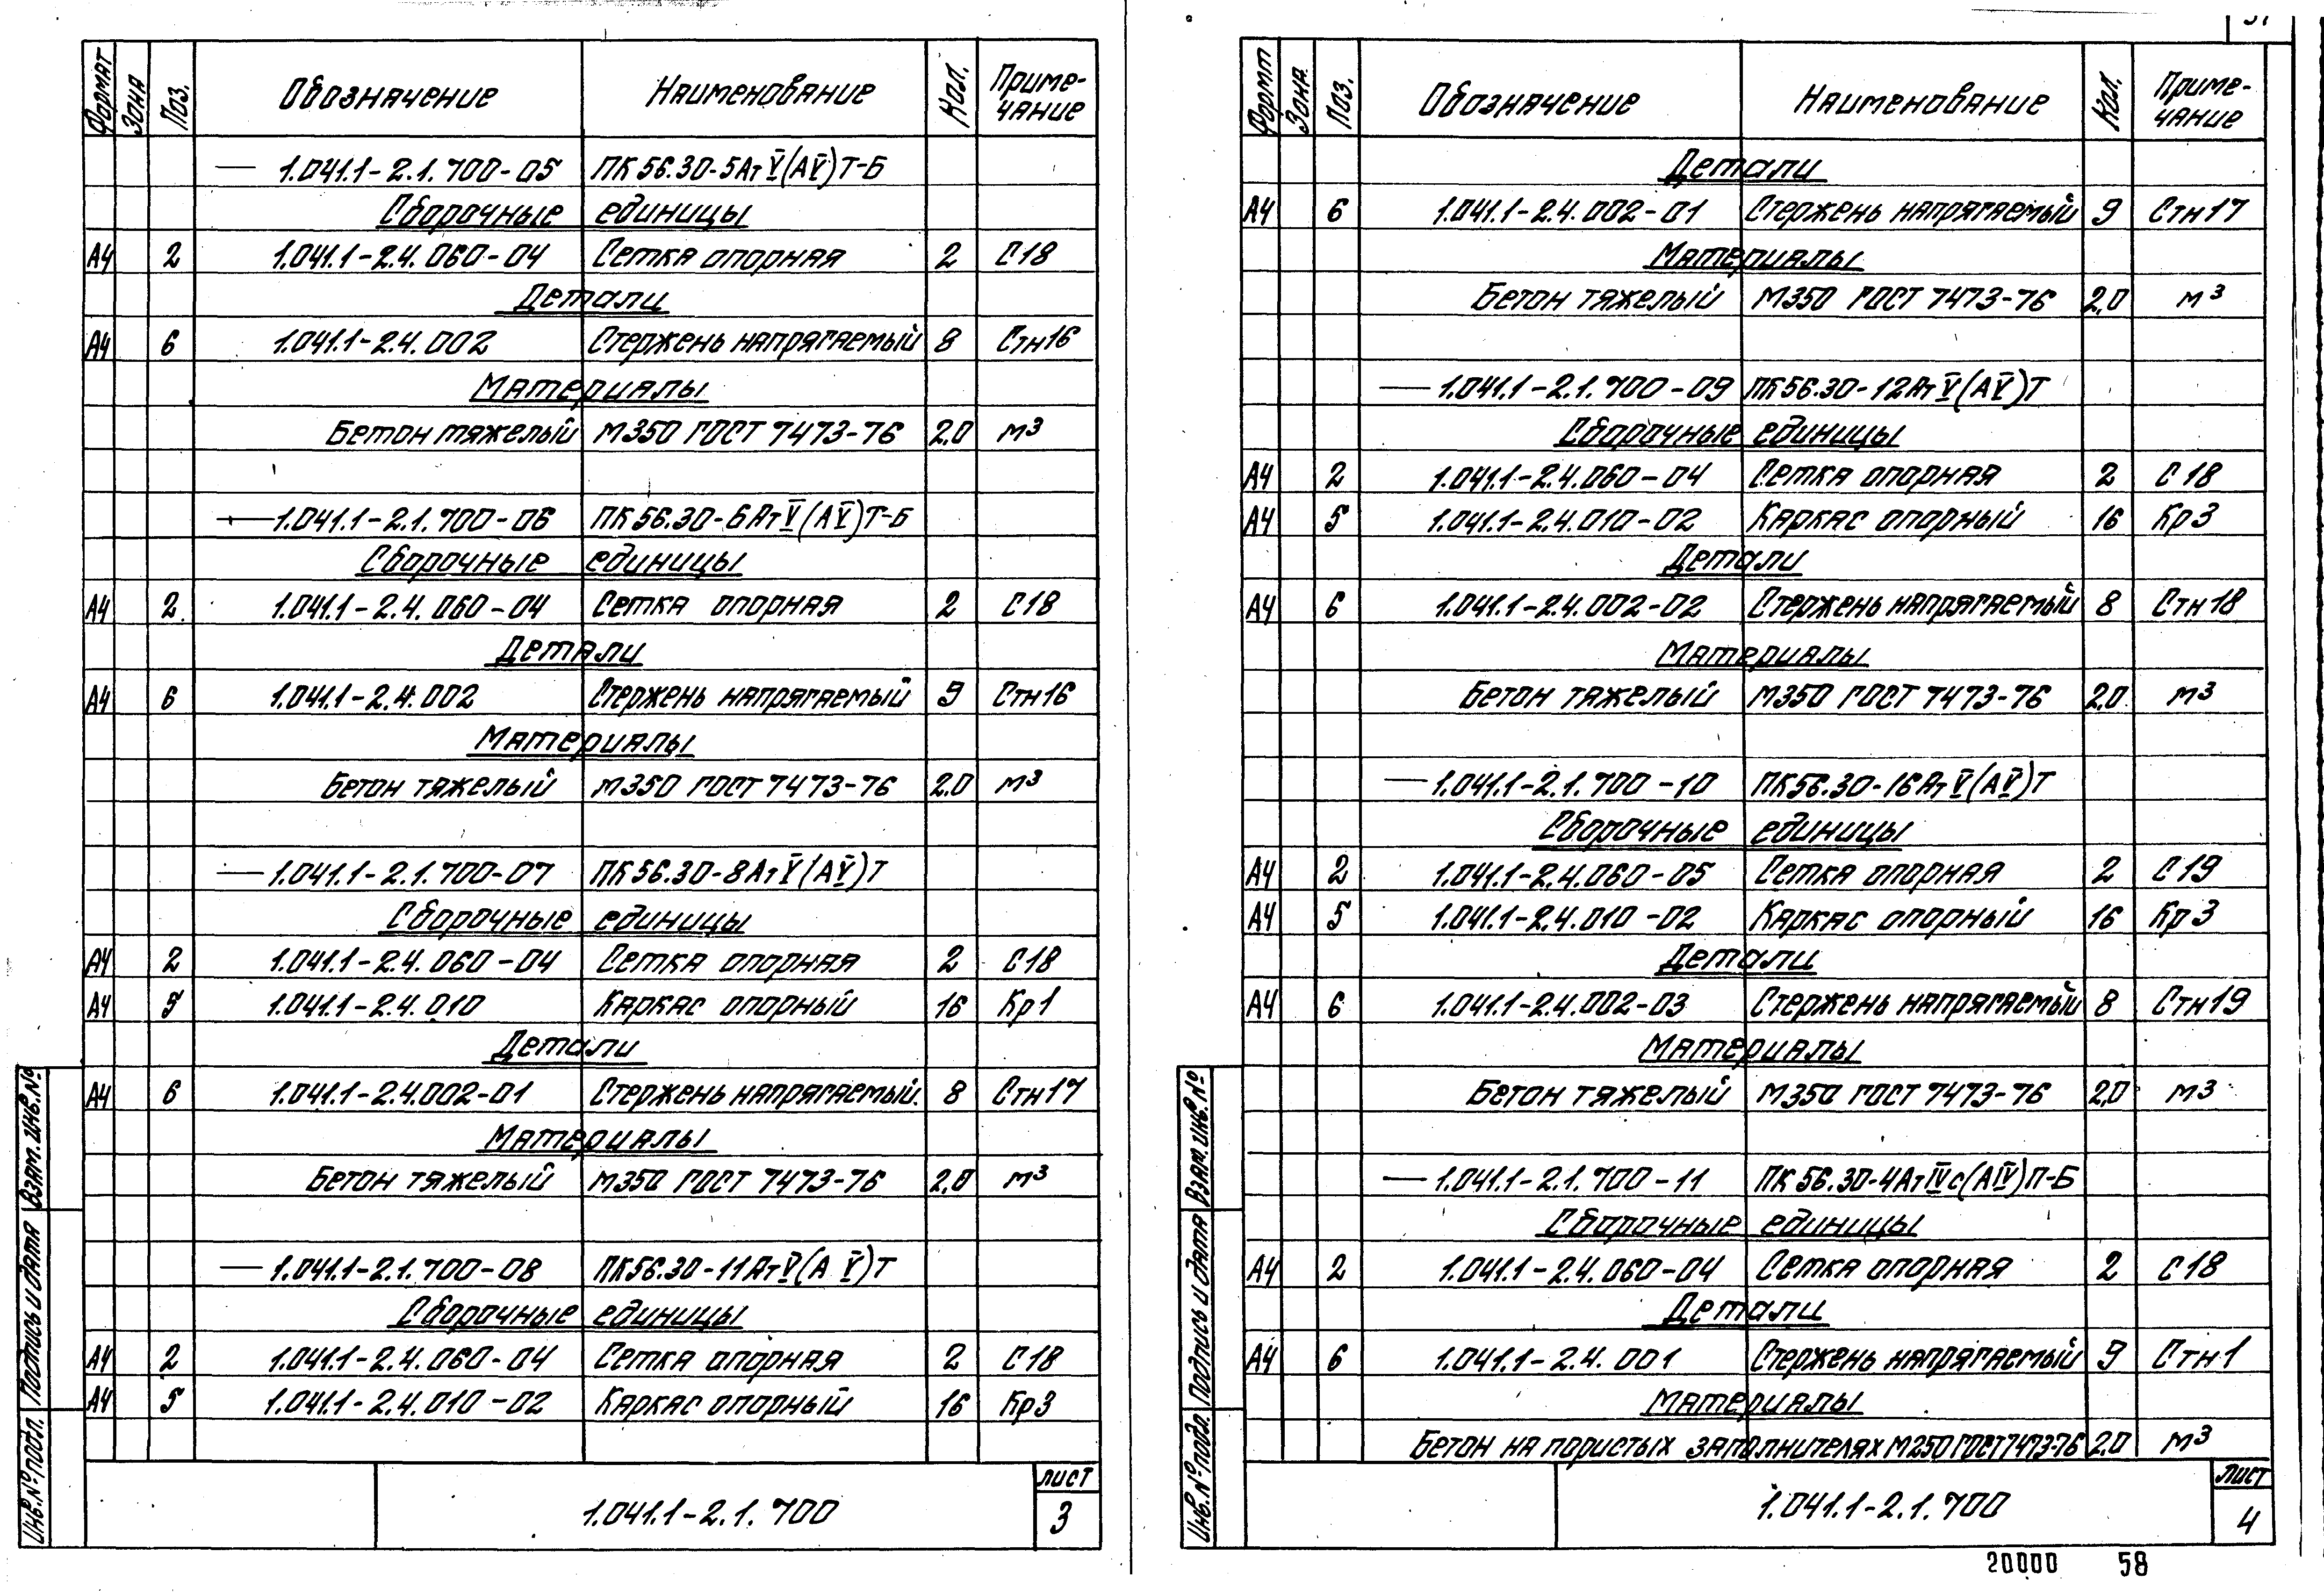 Формат Зона Поз. Обозначение Наименование Кол. Приме-
чание
— 1.041.1-2.1.700-05 ПК56.30-5АтV(АV)Т-Б
Сборочные единицы
А4 2 1.041.1-2.4.060-04 Сетка опорная 2 С18
Детали
А4 6 1.041.1-2.4.002 Стержень напрягаемый 8 Стн16
Материалы
Бетон тяжелый М350 ГОСТ 7473-76 2,0 м³
— 1.041.1-2.1.700-06 ПК56.30-6АтV(АV)Т-Б
Сборочные единицы
А4 2 1.041.1-2.4.060-04 Сетка опорная 2 С18
Детали
А4 6 1.041.1-2.4.002 Стержень напрягаемый 9 Стн16
Материалы
Бетон тяжелый М350 ГОСТ 7473-76 2,0 м³
— 1.041.1-2.1.700-07 ПК56.30-8АтV(АV)Т
Сборочные единицы
А4 2 1.041.1-2.4.060-04 Сетка опорная 2 С18
А4 5 1.041.1-2.4.010 Каркас опорный 16 Кр1
Детали
А4 6 1.041.1-2.4.002-01 Стержень напрягаемый. 8 Стн17
Материалы
Бетон тяжелый М350 ГОСТ 7473-76 2,0 м³
— 1.041.1-2.1.700-08 ПК56.30-11АтV(АV)Т
Сборочные единицы
А4 2 1.041.1-2.4.060-04 Сетка опорная 2 С18
А4 5 1.041.1-2.4.010-02 Каркас опорный 16 Кр3
Инв.№подл. Подпись и дата Взам.инв.№
1.041.1-2.1.700
лист
3
Формт Зона. Поз. Обозначение Наименование Кол. Приме-
чание
Детали
А4 6 1.041.1-2.4.002-01 Стержень напрягаемый 9 Стн17
Материалы
Бетон тяжелый М350 ГОСТ 7473-76 2,0 м³
— 1.041.1-2.1.700-09 ПК56.30-12АтV(АV)Т
Сборочные единицы
А4 2 1.041.1-2.4.060-04 Сетка опорная 2 С18
А4 5 1.041.1-2.4.010-02 Каркас опорный 16 Кр3
Детали
А4 6 1.041.1-2.4.002-02 Стержень напрягаемый 8 Стн18
Материалы
Бетон тяжелый М350 ГОСТ 7473-76 2,0 м³
— 1.041.1-2.1.700-10 ПК56.30-16АтV(АV)Т
Сборочные единицы
А4 2 1.041.1-2.4.060-05 Сетка опорная 2 С19
А4 5 1.041.1-2.4.010-02 Каркас опорный 16 Кр3
Детали
А4 6 1.041.1-2.4.002-03 Стержень напрягаемый 8 Стн19
Материалы
Бетон тяжелый М350 ГОСТ 7473-76 2,0 м³
— 1.041.1-2.1.700-11 ПК56.30-4АтIVс(АIV)П-Б
Сборочные единицы
А4 2 1.041.1-2.4.060-04 Сетка опорная 2 С18
Детали
А4 6 1.041.1-2.4.001 Стержень напрягаемый 9 Стн1
Материалы
Бетон на пористых заполнителях М250 ГОСТ7473-76 2,0 м³
Инв.№подл. Подпись и дата Взам.инв.№
1.041.1-2.1.700
лист
4
20000 58